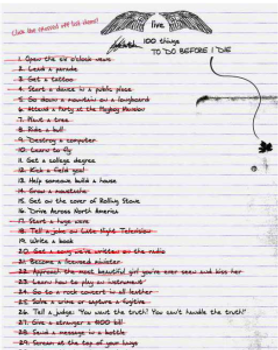 Click the crossed off list items!
live
100 things
TO DO BEFORE I DIE
1. Open the six o'clock news
2. Lead a parade
3. Get a tattoo
4. Start a dance in a public place
5. Go down a mountain on a longboard
6. Attend a Party at the Playboy Mansion
7. Plant a tree
8. Ride a bull
9. Destroy a computer
10. Learn to fly
11. Get a college degree
12. Kick a field goal
13. Help someone build a house
14. Grow a moustache
15. Get on the cover of Rolling Stone
16. Drive Across North America
17. Start a huge wave
18. Tell a joke on Late Night Television
19. Write a book
20. Get a song we've written on the radio
21. Become a licensed minister
22. Approach the most beautiful girl you've ever seen and kiss her
23. Learn how to play an instrument
24. Go to a rock concert in all leather
25. Solve a crime or capture a fugitive
26. Tell a judge: "You want the truth! You can't handle the truth!"
27. Give a stranger a $100 bill
28. Send a message in a bottle
29. Scream at the top of your lungs